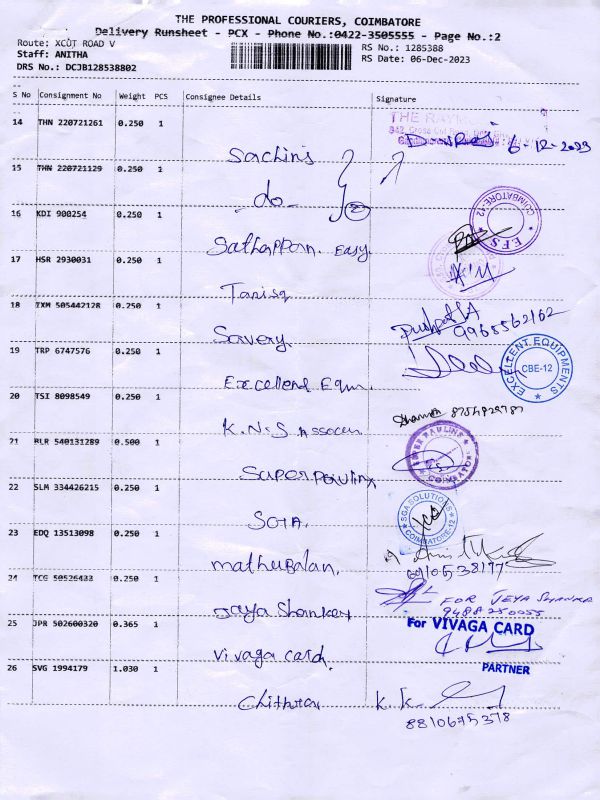 THE PROFESSIONAL COURIERS, COIMBATORE
Delivery Runsheet - PCX - Phone No.:0422-3505555 - Page No.:2
Route: XCUT ROAD V
RS No.: 1285388
Staff: ANITHA
RS Date: 06-Dec-2023
DRS No.: DCJB128538802
S No Consignment No Weight PCS Consignee Details Signature
14 THN 220721261 0.250 1
THE RAYM
6-12-2023
Sachins
15 THN 220721129 0.250 1
-do- 2
16 KDI 900254 0.250 1
COIMBATORE-12
E.F.S
Sathappan. Easy.
17 HSR 2930031 0.250 1
Tanisq
18 TXM 505442128 0.250 1
9965562162
Savery.
19 TRP 6747576 0.250 1
EXCELLENT EQUIPMENTS
CBE-12
Excellend Equ.
20 TSI 8098549 0.250 1
K.N.S Assocen
21 BLR 540131289 0.500 1
SUPER PAULINX
COIMBATORE
Superpaulinx
22 SLM 334426215 0.250 1
SGA SOLUTIONS
COIMBATORE-12
SGTA.
23 EDQ 13513098 0.250 1
mathubalan.
24 TCG 50526433 0.250 1
FOR JEYA SHANKAR
9488250055
Jaya Shanker
25 JPR 502600320 0.365 1
For VIVAGA CARD
Vivaga card.
PARTNER
26 SVG 1994179 1.030 1
Chithra K.K.
8810675378